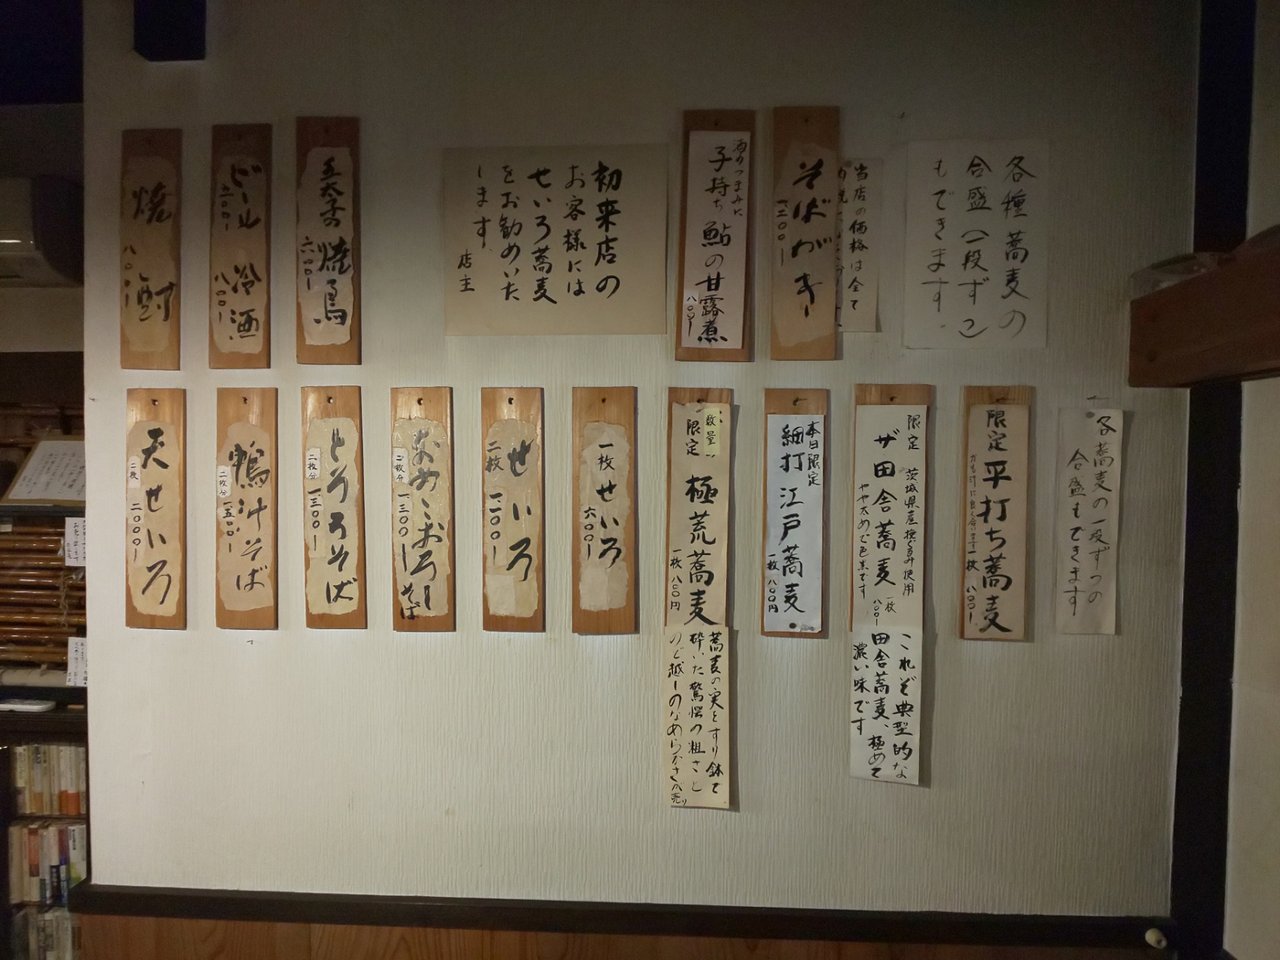 各種蕎麦の
合盛(一段ずつ)
もできます
当店の価格は全て
そばがき
一二〇〇ー
酒のつまみに
子持ち鮎の甘露煮
八〇〇ー
初来店の
お客様には
せいろ蕎麦
をお勧めいた
します
店主
焼鳥
六〇〇ー
ビール
六〇〇ー
冷酒
八〇〇ー
焼酎
八〇〇ー
各蕎麦の一段ずつの
合盛もできます
限定
平打ち蕎麦
一枚 八〇〇ー
限定
茨城県産
使用
ザ田舎蕎麦
一枚
八〇〇ー
やや太めで色黒です
これぞ典型的な
田舎蕎麦、極めて
濃い味です
本日限定
細打江戸蕎麦
一枚 八〇〇円
数量
限定
極荒蕎麦
一枚 八〇〇円
蕎麦の実をすり鉢で
砕いた驚愕の粗さと
のど越しのなめらかさが売り
一枚せいろ
六〇〇ー
せいろ
二枚
一一〇〇ー
なめこおろしそば
二枚分
一三〇〇ー
とろろそば
二枚分
一三〇〇ー
鴨汁そば
二枚分
一五〇〇ー
天せいろ
二枚
二〇〇〇ー